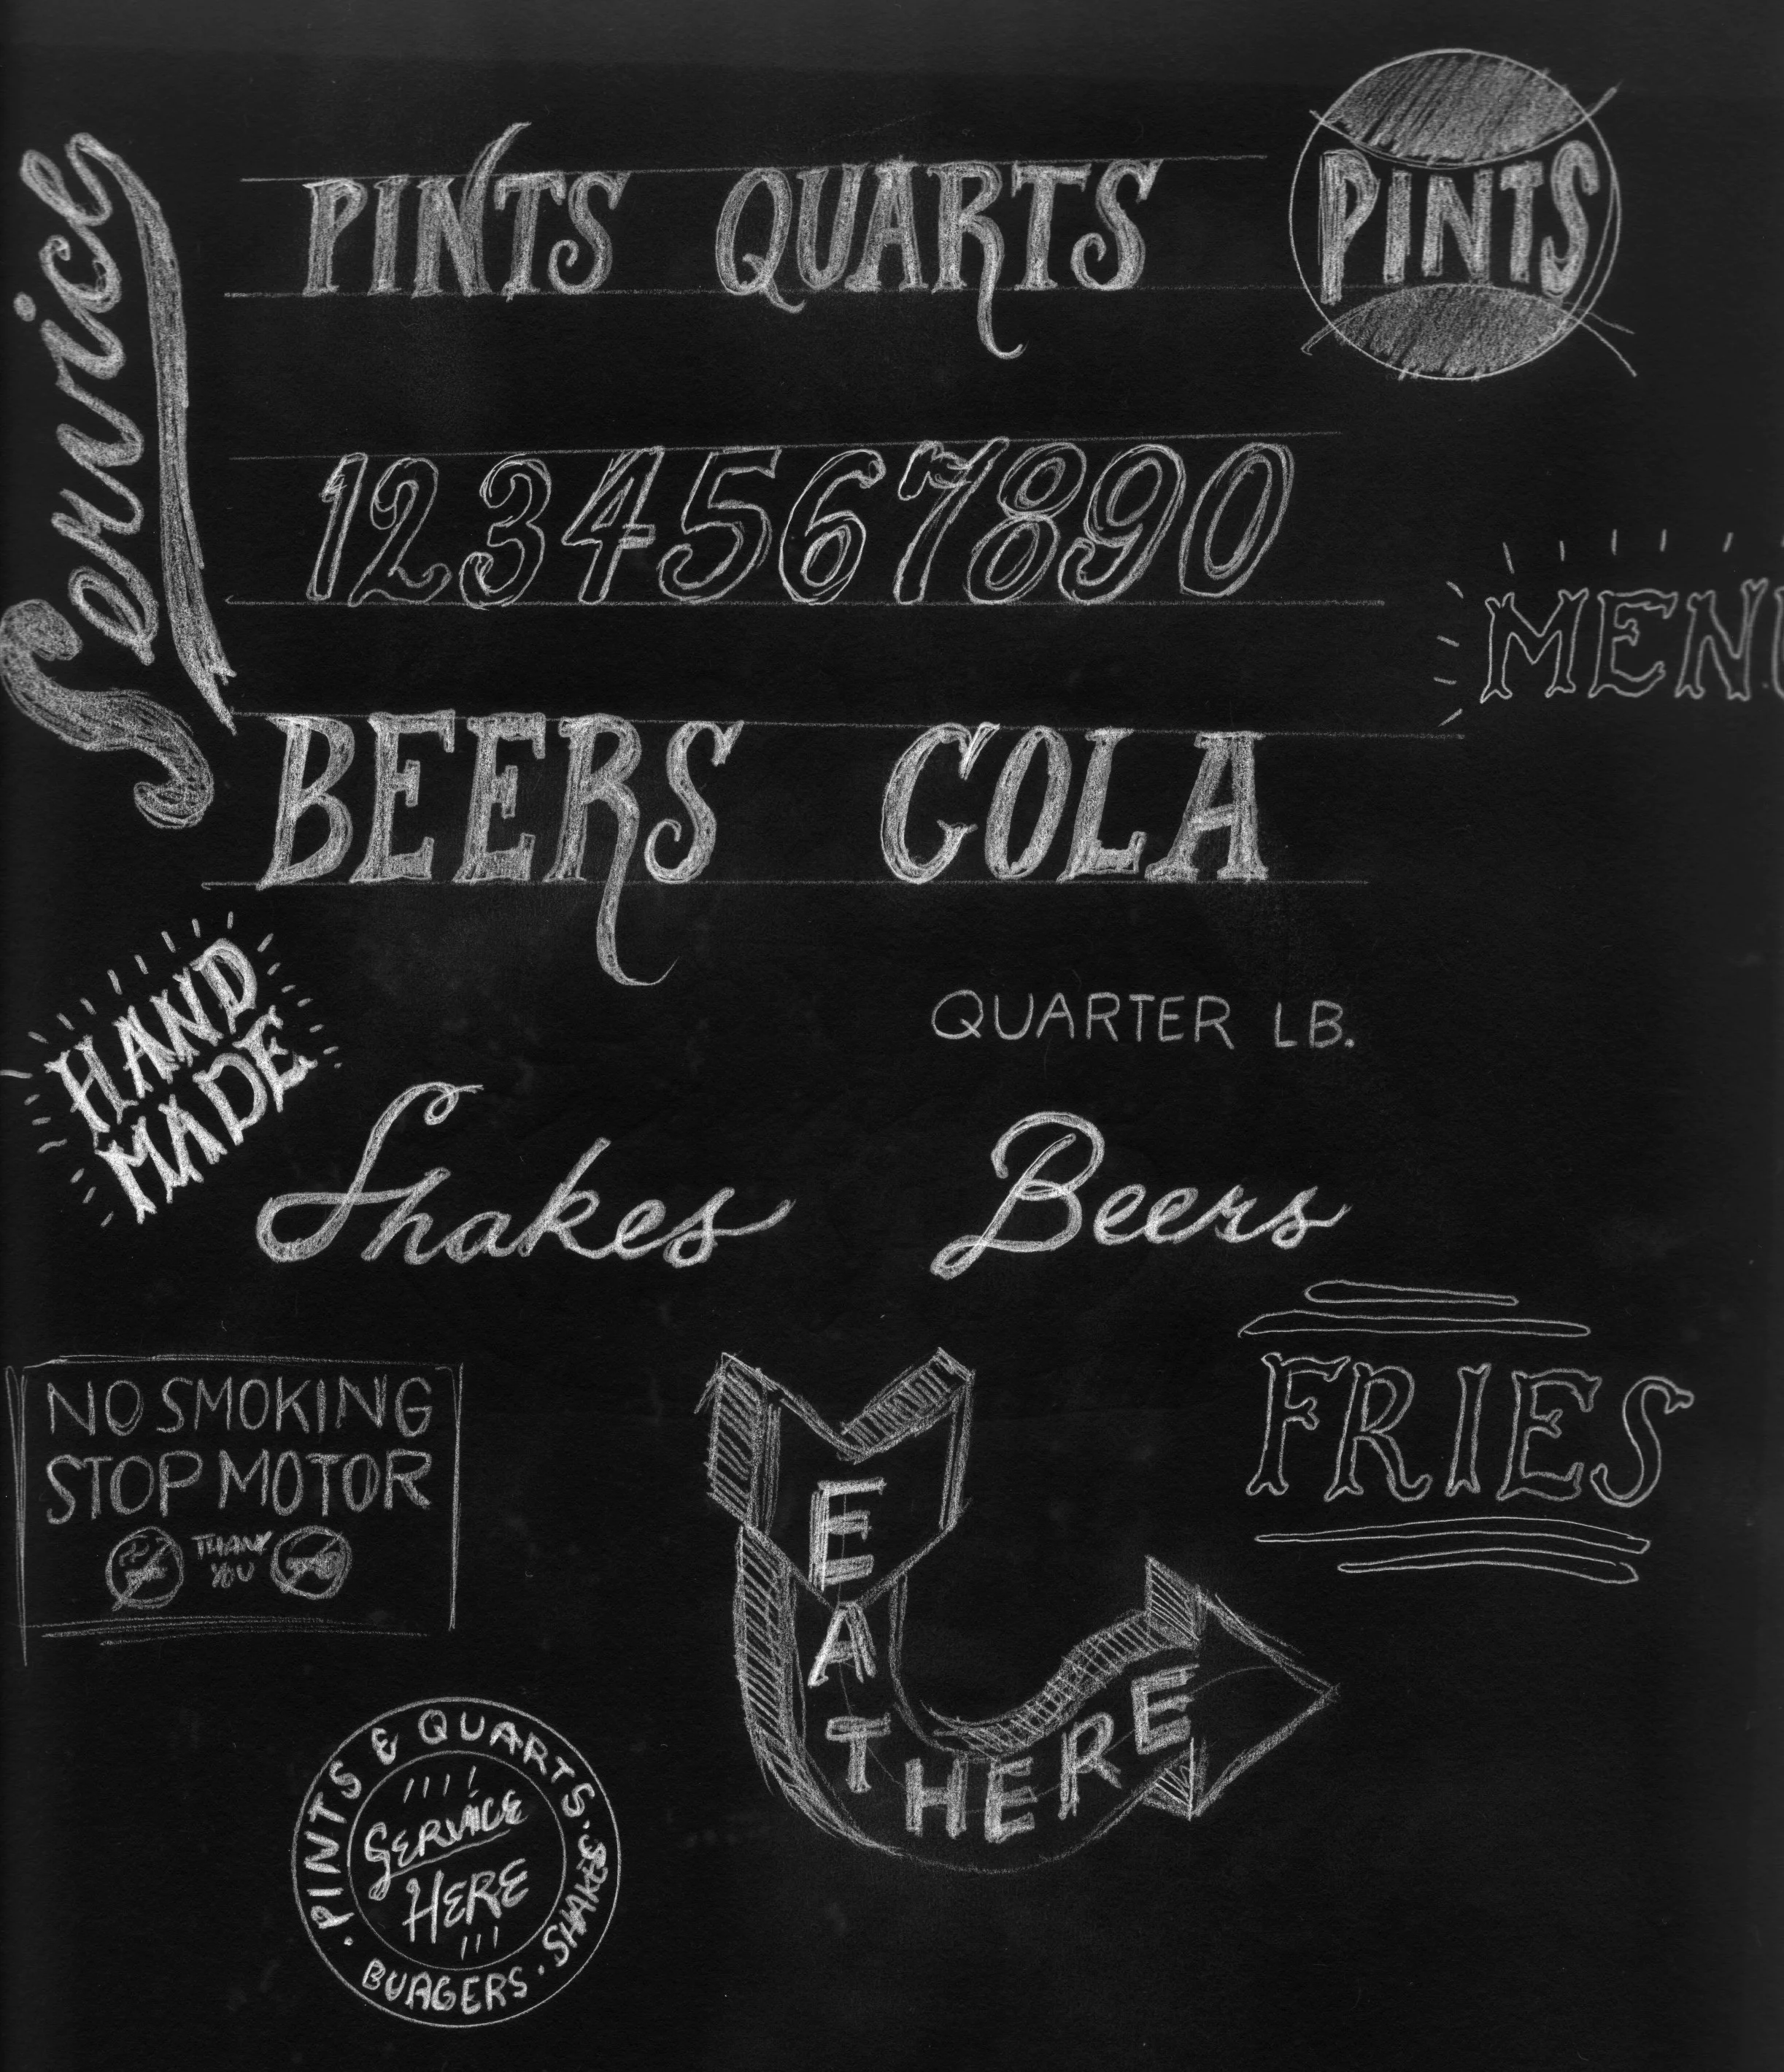 Service
PINTS QUARTS
PINTS
1234567890
MENU
BEERS COLA
HAND
MADE
QUARTER LB.
Shakes Beers
NO SMOKING
STOP MOTOR
THANK
YOU
FRIES
EAT HERE
PINTS & QUARTS. SHAKES. BURGERS.
SERVICE
HERE